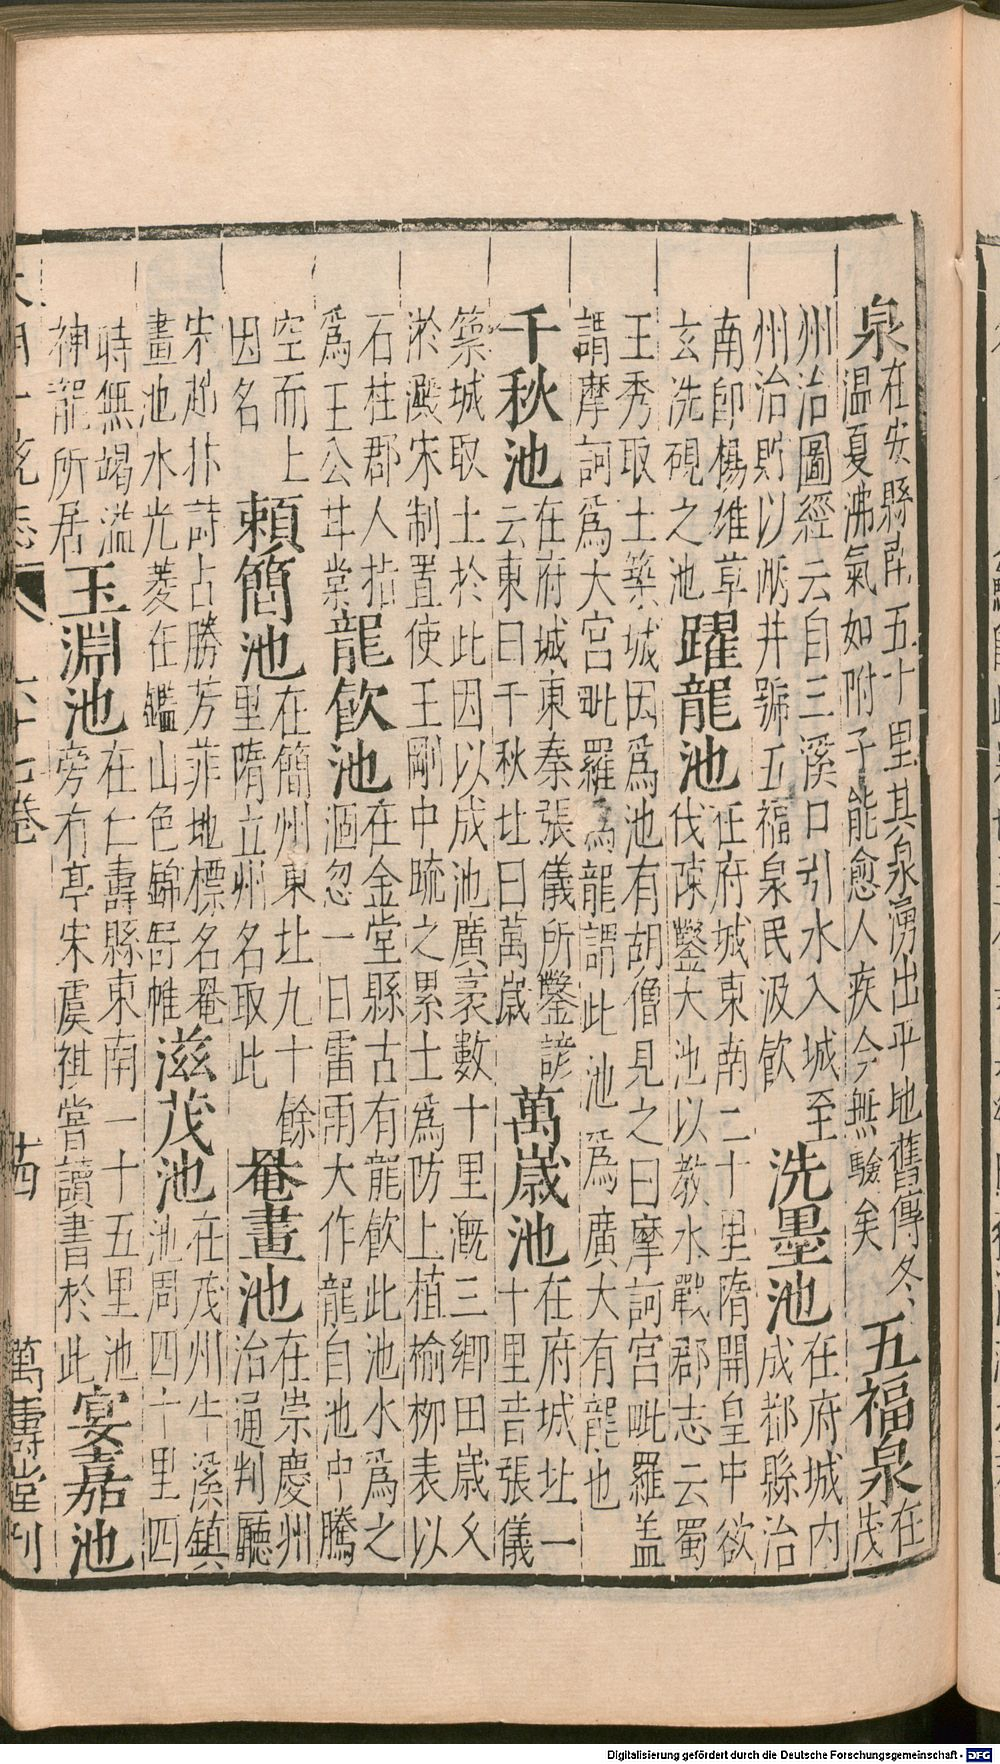 泉在安縣南五十里其泉湧出平地舊傳冬
溫夏沸氣如附子能愈人疾今無驗矣五福泉在茂
州治圖經云自三溪口引水入城至洗墨池在府城內
州治貯以兩井號五福泉民汲飲成都縣治
南即楊雄草躍龍池在府城東南二十里隋開皇中欲
玄洗硯之池伐陳鑿大池以教水戰郡志云蜀
王秀取土築城因為池有胡僧見之曰摩訶宮毗羅蓋
謂摩訶為大宮毗羅為龍謂此池為廣大有龍也
千秋池在府城東秦張儀所鑿諺萬歲池在府城北一
云東曰千秋北曰萬歲十里昔張儀
築城取土於此因以成池廣袤數十里溉三鄉田歲久
淤澱宋制置使王剛中疏之累土為防上植榆柳表以
石柱郡人指龍飲池在金堂縣古有龍飲此池水為之
為王公甘棠涸忽一日雷雨大作龍自池中騰
空而上賴簡池在簡州東北九十餘罨畫池在崇慶州
因名里隋立州名取此治通判廳
宋趙抃詩占勝芳菲地標名罨滋茂池在茂州牛溪鎮
畫池水光菱在鑑山色錦舒帷池周四十里四
時無竭溢玉淵池在仁壽縣東南一十五里池宴嘉池
神龍所居旁有亭宋虞祖嘗讀書於此
大明一統志 六十七卷 十四 萬壽堂刊
Digitalisierung gefördert durch die Deutsche Forschungsgemeinschaft - DFG